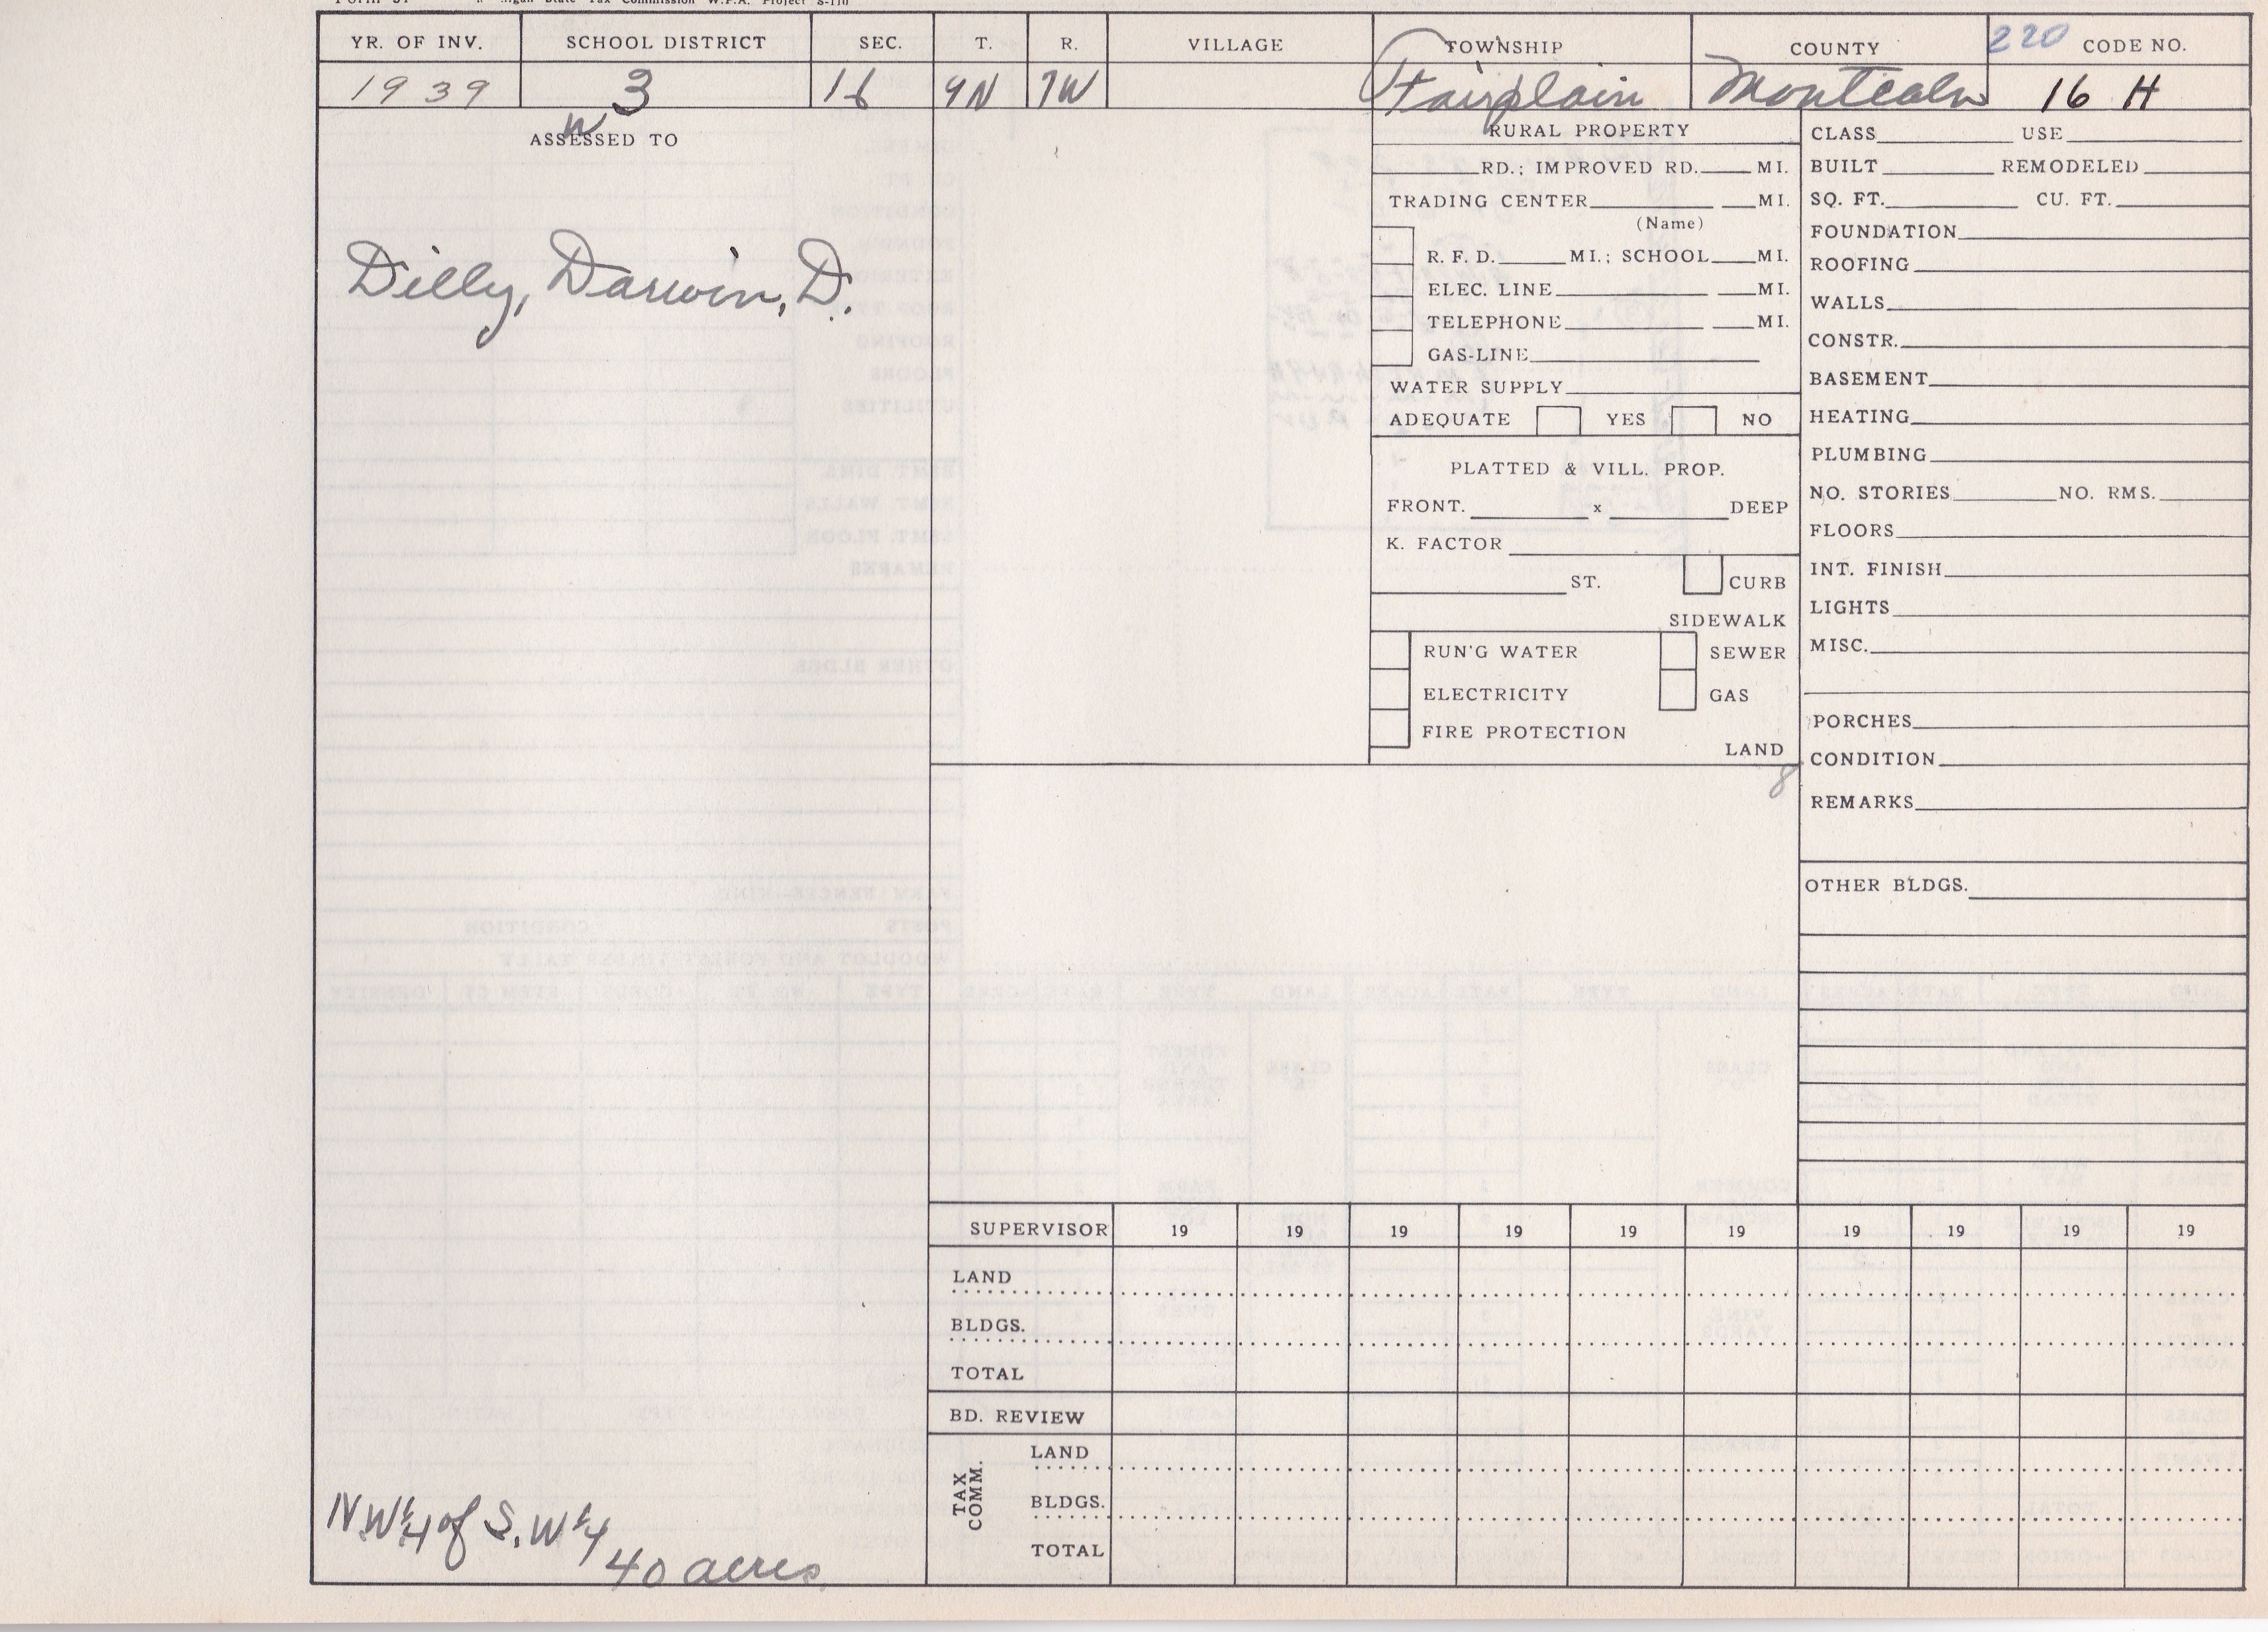 State Tax Commission W.P.A. Project S-170
YR. OF INV. SCHOOL DISTRICT SEC. T. R. VILLAGE TOWNSHIP COUNTY 220 CODE NO.
1939 3 16 9N 7W Fairplain Montcalm 16 H
W
ASSESSED TO
Dilly, Darwin, D.
NW 1/4 of S.W 1/4
40 acres
RURAL PROPERTY
RD.; IMPROVED RD. MI.
TRADING CENTER MI.
(Name)
R. F. D. MI.; SCHOOL MI.
ELEC. LINE MI.
TELEPHONE MI.
GAS-LINE
WATER SUPPLY
ADEQUATE YES NO
PLATTED & VILL. PROP.
FRONT. x DEEP
K. FACTOR
ST. CURB
SIDEWALK
RUN'G WATER SEWER
ELECTRICITY GAS
FIRE PROTECTION
LAND
8
CLASS USE
BUILT REMODELED
SQ. FT. CU. FT.
FOUNDATION
ROOFING
WALLS
CONSTR.
BASEMENT
HEATING
PLUMBING
NO. STORIES NO. RMS.
FLOORS
INT. FINISH
LIGHTS
MISC.
PORCHES
CONDITION
REMARKS
OTHER BLDGS.
SUPERVISOR 19 19 19 19 19 19 19 19 19 19
LAND
BLDGS.
TOTAL
BD. REVIEW
TAX COMM.
LAND
BLDGS.
TOTAL